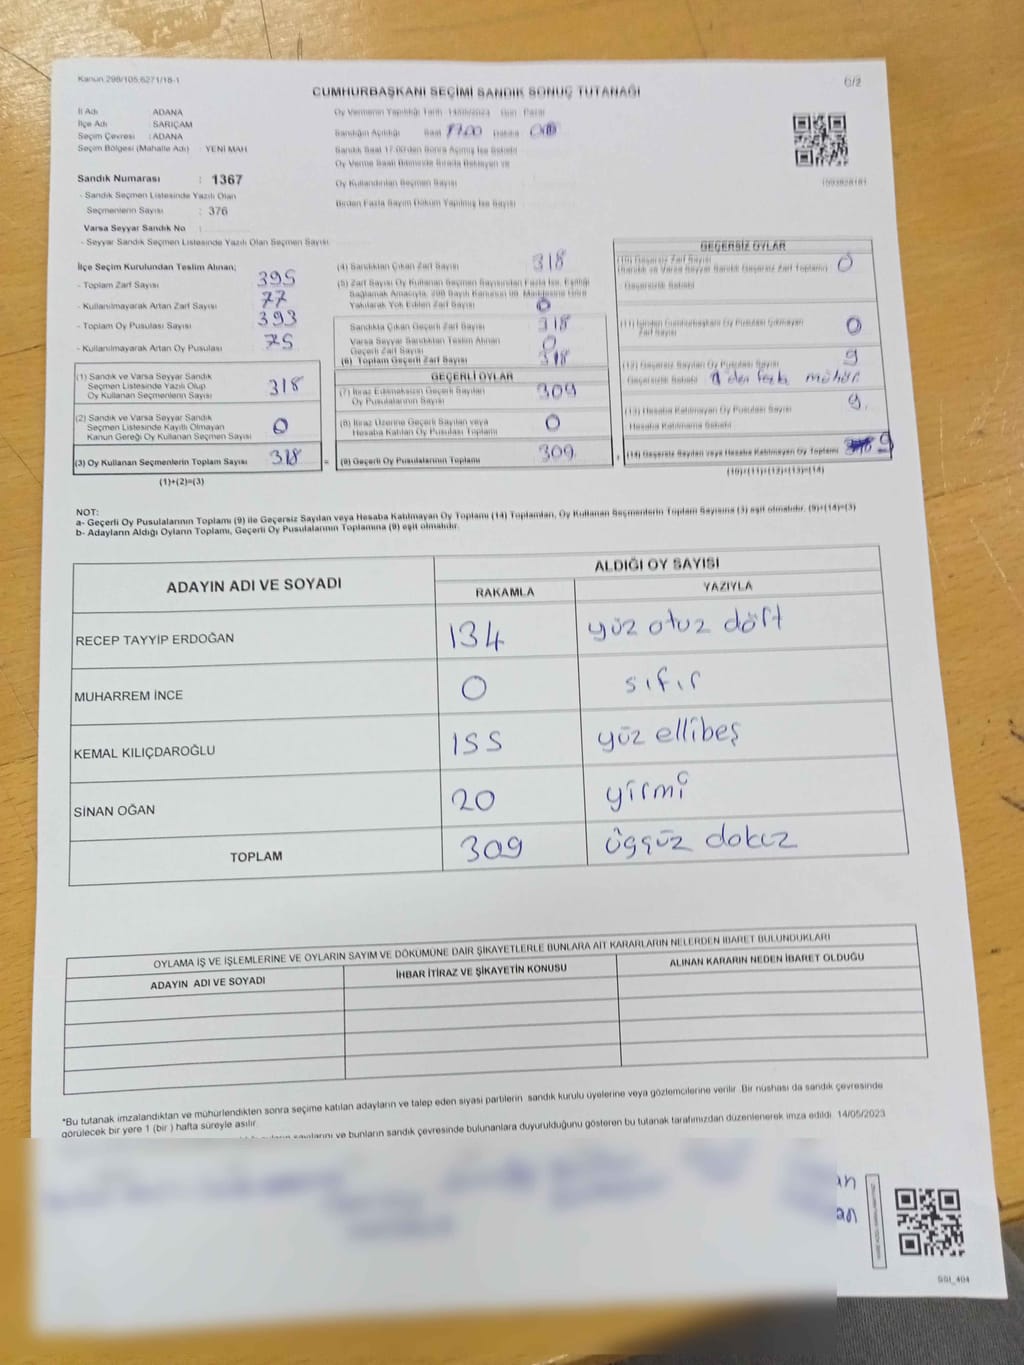 Kanun 298/105,6271/18-1
C/2
CUMHURBAŞKANI SEÇİMİ SANDIK SONUÇ TUTANAĞI
İl Adı ADANA
İlçe Adı SARIÇAM
Seçim Çevresi : ADANA
Seçim Bölgesi (Mahalle Adı) : YENİ MAH
Sandık Numarası : 1367
- Sandık Seçmen Listesinde Yazılı Olan
Seçmenlerin Sayısı : 376
Varsa Seyyar Sandık No :
- Seyyar Sandık Seçmen Listesinde Yazılı Olan Seçmen Sayısı
Oy Vermenin Yapıldığı Tarih 14/05/2023 Gün Pazar
Sandığın Açıldığı Saat 17.00 Dakika
Sandık Saat 17:00'den Sonra Açılmış İse Sebebi
Oy Verme Saati Bitiminde Sırada Bekleyen ve
Oy Kullandırılan Seçmen Sayısı
Birden Fazla Sayım Döküm Yapılmış İse Sayısı
İlçe Seçim Kurulundan Teslim Alınan;
- Toplam Zarf Sayısı 395
- Kullanılmayarak Artan Zarf Sayısı 77
- Toplam Oy Pusulası Sayısı 393
- Kullanılmayarak Artan Oy Pusulası 75
(1) Sandık ve Varsa Seyyar Sandık
Seçmen Listesinde Yazılı Olup
Oy Kullanan Seçmenlerin Sayısı 318
(2) Sandık ve Varsa Seyyar Sandık
Seçmen Listesinde Kayıtlı Olmayan
Kanun Gereği Oy Kullanan Seçmen Sayısı 0
(3) Oy Kullanan Seçmenlerin Toplam Sayısı 318 =
(1)+(2)=(3)
(4) Sandıktan Çıkan Zarf Sayısı 318
(5) Zarf Sayısı Oy Kullanan Seçmen Sayısından Fazla İse, Eşitliği
Sağlamak Amacıyla, 298 Sayılı Kanunun 98. Maddesine Göre
Yakılarak Yok Edilen Zarf Sayısı 0
Sandıkta Çıkan Geçerli Zarf Sayısı 318
Varsa Seyyar Sandıktan Teslim Alınan
Geçerli Zarf Sayısı 0
(6) Toplam Geçerli Zarf Sayısı 318
GEÇERLİ OYLAR
(7) İtiraz Edilmeksizin Geçerli Sayılan
Oy Pusulalarının Sayısı 309
(8) İtiraz Üzerine Geçerli Sayılan veya
Hesaba Katılan Oy Pusulası Toplamı 0
(9) Geçerli Oy Pusulalarının Toplamı 309
GEÇERSİZ OYLAR
(10) Geçersiz Zarf Sayısı 0
(Sandık ve Varsa Seyyar Sandık Geçersiz Zarf Toplamı)
Geçersizlik Sebebi
(11) İçinden Cumhurbaşkanı Oy Pusulası Çıkmayan
Zarf Sayısı 0
(12) Geçersiz Sayılan Oy Pusulası Sayısı 9
Geçersizlik Sebebi 1'den fazla mühür
(13) Hesaba Katılmayan Oy Pusulası Sayısı 9.
Hesaba Katılmama Sebebi
(14) Geçersiz Sayılan veya Hesaba Katılmayan Oy Toplamı 9
(10)+(11)+(12)+(13)=(14)
NOT:
a- Geçerli Oy Pusulalarının Toplamı (9) ile Geçersiz Sayılan veya Hesaba Katılmayan Oy Toplamı (14) Toplamları, Oy Kullanan Seçmenlerin Toplam Sayısına (3) eşit olmalıdır. (9)+(14)=(3)
b- Adayların Aldığı Oyların Toplamı, Geçerli Oy Pusulalarının Toplamına (9) eşit olmalıdır.
ADAYIN ADI VE SOYADI
ALDIĞI OY SAYISI
RAKAMLA YAZIYLA
RECEP TAYYİP ERDOĞAN 134 yüz otuz dört
MUHARREM İNCE 0 sıfır
KEMAL KILIÇDAROĞLU 155 yüz ellibeş
SİNAN OĞAN 20 yirmi
TOPLAM 309 üçyüz dokuz
OYLAMA İŞ VE İŞLEMLERİNE VE OYLARIN SAYIM VE DÖKÜMÜNE DAİR ŞİKAYETLERLE BUNLARA AİT KARARLARIN NELERDEN İBARET BULUNDUKLARI
ADAYIN ADI VE SOYADI İHBAR İTİRAZ VE ŞİKAYETİN KONUSU ALINAN KARARIN NEDEN İBARET OLDUĞU
*Bu tutanak imzalandıktan ve mühürlendikten sonra seçime katılan adayların ve talep eden siyasi partilerin sandık kurulu üyelerine veya gözlemcilerine verilir. Bir nüshası da sandık çevresinde
görülecek bir yere 1 (bir) hafta süreyle asılır.
ve bunların sandık çevresinde bulunanlara duyurulduğunu gösteren bu tutanak tarafımızdan düzenlenerek imza edildi. 14/05/2023
an
SGI_404